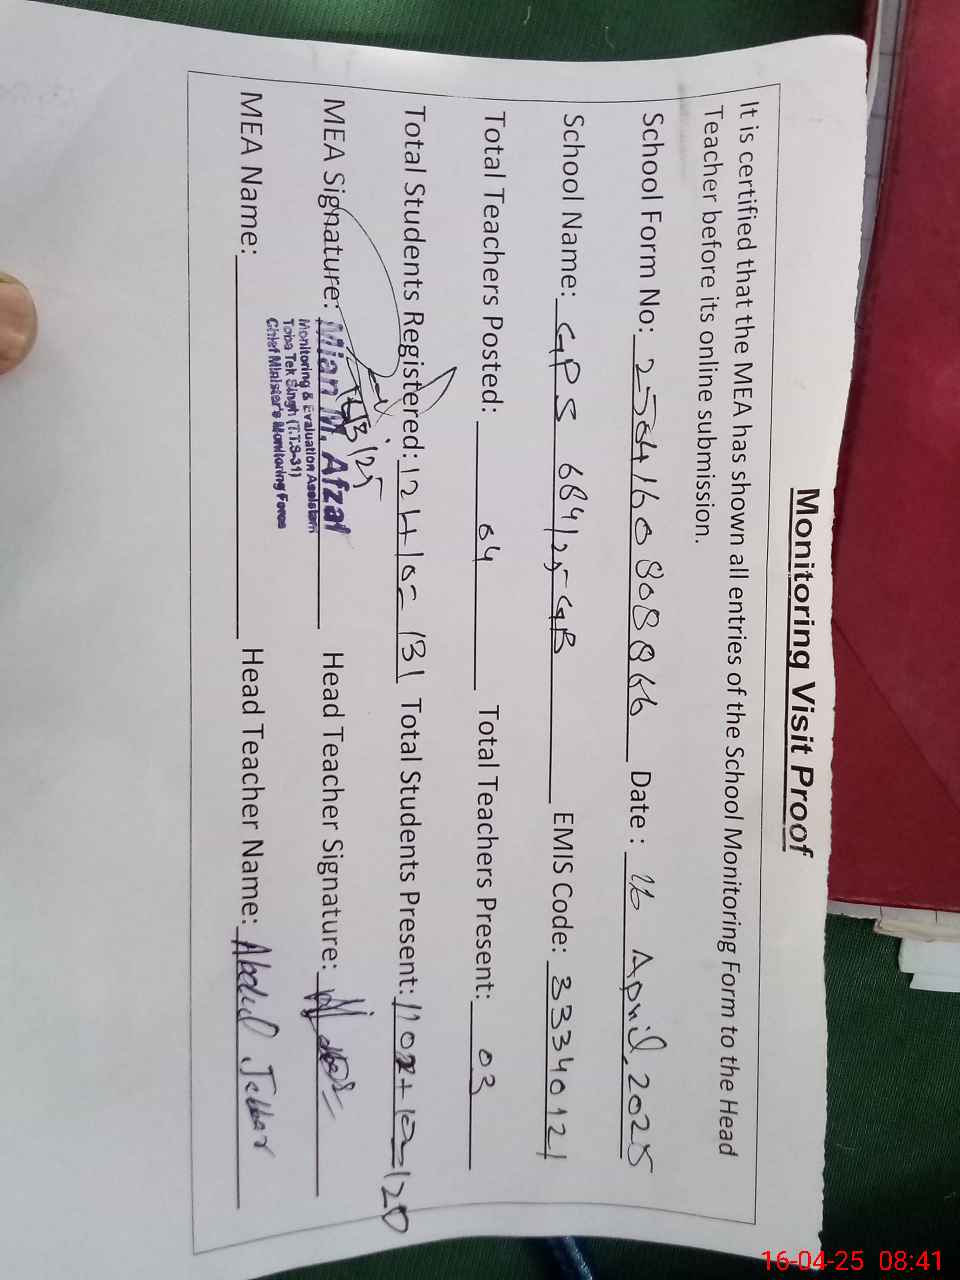 Monitoring Visit Proof
It is certified that the MEA has shown all entries of the School Monitoring Form to the Head
Teacher before its online submission.
School Form No: Date: 16 April, 2025
School Name: GPS 684/25-GB EMIS Code: 33340121
Total Teachers Posted: 04 Total Teachers Present: 03
Total Students Registered: 131 Total Students Present: 120
MEA Signature: Mian M. Afzal Head Teacher Signature:
Monitoring & Evaluation Assistant
Toba Tek Singh (T.T.S-31)
Chief Minister's Monitoring Force
MEA Name: Head Teacher Name: Abdul Jabbar
16-04-25 08:41